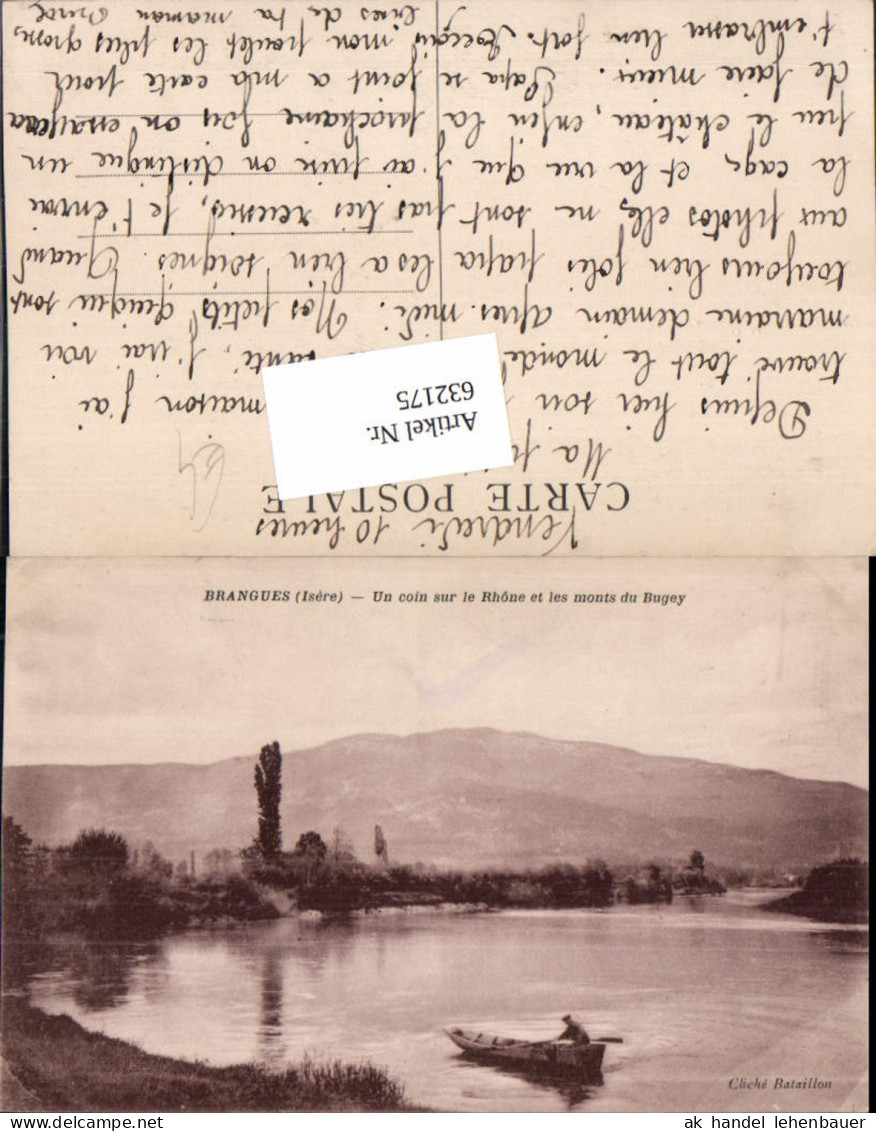 CARTE POSTALE
Vendredi 10 heures
Ma
Artikel Nr.
632175
Depuis hier soir maison j'ai
trouvé tout le monde santé, j'irai voir
marraine demain après-midi. Nos petits quiqui sont
toujours bien jolis papa les a bien soignés. Quand
aux photos elles ne sont pas très réussies, je t'envoi
la cage et la vue que j'ai juin on distingue un
peu le château, enfin la prochaine fois on essayera
de faire mieux. Papa se joint a ma carte pour
t'embrasser bien fort. Reçois mon poulet les plus gros
bises de ta maman
BRANGUES (Isère) — Un coin sur le Rhône et les monts du Bugey
Cliché Bataillon
ak handel lehenbauer